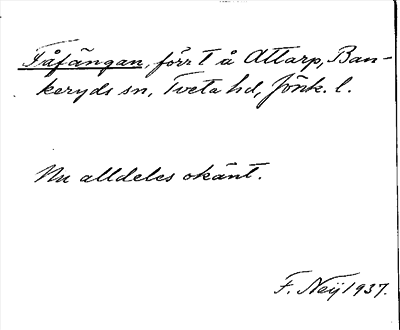 Fåfängan, förr t å Attarp, Ban-
keryds sn, Tveta hd, Jönk. l.
Nu alldeles okänt.
F. Neij 1937.